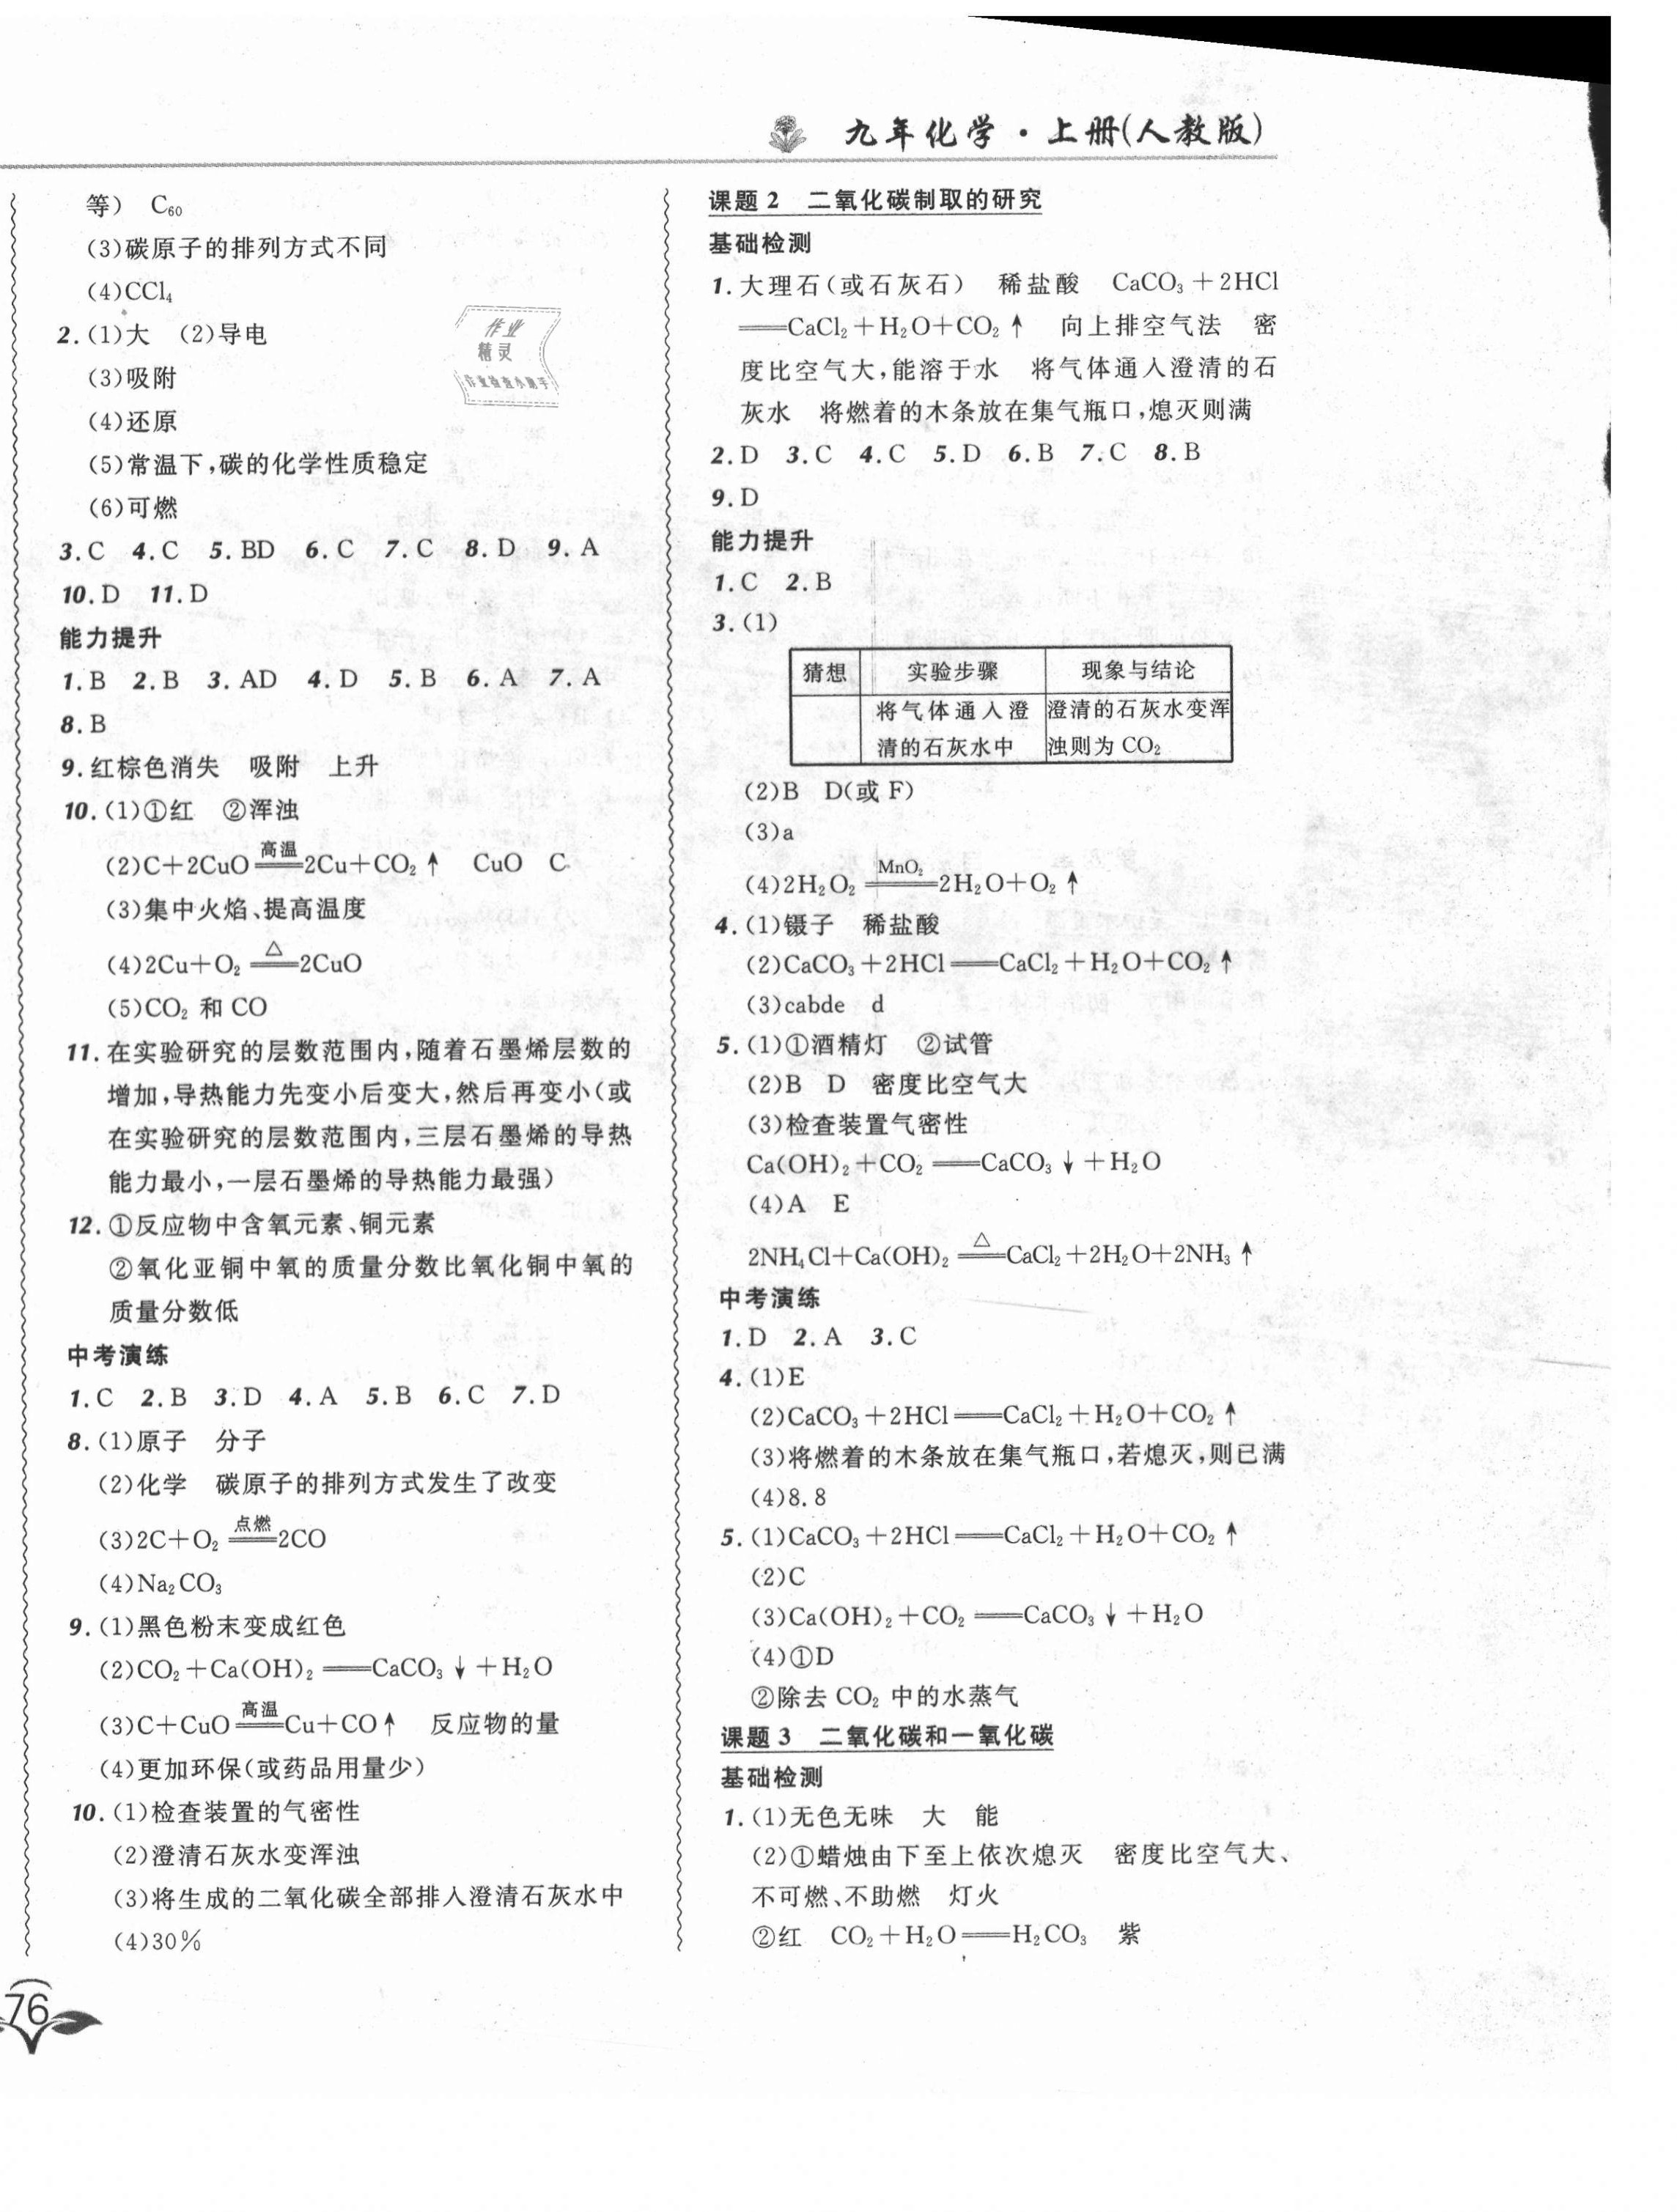 九年化学·上册(人教版)
等） C₆₀
(3)碳原子的排列方式不同
(4)CCl₄
2.(1)大 (2)导电
(3)吸附
(4)还原
(5)常温下,碳的化学性质稳定
(6)可燃
3.C 4.C 5.BD 6.C 7.C 8.D 9.A
10.D 11.D
能力提升
1.B 2.B 3.AD 4.D 5.B 6.A 7.A
8.B
9.红棕色消失 吸附 上升
10.(1)①红 ②浑浊
(2)C+2CuO=高温=2Cu+CO₂↑ CuO C
(3)集中火焰、提高温度
(4)2Cu+O₂=△=2CuO
(5)CO₂ 和 CO
11.在实验研究的层数范围内,随着石墨烯层数的
增加,导热能力先变小后变大,然后再变小(或
在实验研究的层数范围内,三层石墨烯的导热
能力最小,一层石墨烯的导热能力最强)
12.①反应物中含氧元素、铜元素
②氧化亚铜中氧的质量分数比氧化铜中氧的
质量分数低
中考演练
1.C 2.B 3.D 4.A 5.B 6.C 7.D
8.(1)原子 分子
(2)化学 碳原子的排列方式发生了改变
(3)2C+O₂=点燃=2CO
(4)Na₂CO₃
9.(1)黑色粉末变成红色
(2)CO₂+Ca(OH)₂══CaCO₃↓+H₂O
(3)C+CuO=高温=Cu+CO↑ 反应物的量
(4)更加环保(或药品用量少)
10.(1)检查装置的气密性
(2)澄清石灰水变浑浊
(3)将生成的二氧化碳全部排入澄清石灰水中
(4)30%
76
作业
精灵
作业检查小助手
课题2 二氧化碳制取的研究
基础检测
1.大理石(或石灰石) 稀盐酸 CaCO₃+2HCl
══CaCl₂+H₂O+CO₂↑ 向上排空气法 密
度比空气大,能溶于水 将气体通入澄清的石
灰水 将燃着的木条放在集气瓶口,熄灭则满
2.D 3.C 4.C 5.D 6.B 7.C 8.B
9.D
能力提升
1.C 2.B
3.(1)
猜想 实验步骤 现象与结论
将气体通入澄 澄清的石灰水变浑
清的石灰水中 浊则为 CO₂
(2)B D(或 F)
(3)a
(4)2H₂O₂=MnO₂=2H₂O+O₂↑
4.(1)镊子 稀盐酸
(2)CaCO₃+2HCl══CaCl₂+H₂O+CO₂↑
(3)cabde d
5.(1)①酒精灯 ②试管
(2)B D 密度比空气大
(3)检查装置气密性
Ca(OH)₂+CO₂══CaCO₃↓+H₂O
(4)A E
2NH₄Cl+Ca(OH)₂=△=CaCl₂+2H₂O+2NH₃↑
中考演练
1.D 2.A 3.C
4.(1)E
(2)CaCO₃+2HCl══CaCl₂+H₂O+CO₂↑
(3)将燃着的木条放在集气瓶口,若熄灭,则已满
(4)8.8
5.(1)CaCO₃+2HCl══CaCl₂+H₂O+CO₂↑
(2)C
(3)Ca(OH)₂+CO₂══CaCO₃↓+H₂O
(4)①D
②除去 CO₂ 中的水蒸气
课题3 二氧化碳和一氧化碳
基础检测
1.(1)无色无味 大 能
(2)①蜡烛由下至上依次熄灭 密度比空气大、
不可燃、不助燃 灯火
②红 CO₂+H₂O══H₂CO₃ 紫